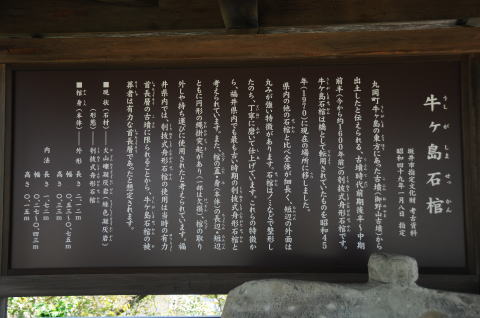 牛ヶ島石棺
うしがしませっかん
坂井市指定文化財 考古資料
昭和四十九年一月八日 指定
丸岡町牛ヶ島の東方にあった古墳(御野山古墳)から
出土したと伝えられる、古墳時代前期後半〜中期
前半(今から約1600年前)の刳抜式舟形石棺です。
牛ヶ島石棺は橋として転用されていたものを昭和45
年(1970)に現在の場所に移しました。
県内の他の石棺と比べ全体が細長く、短辺の外面は
丸みが強い特徴があります。石棺はノミなどで整形し
たのち、丁寧に磨いて仕上げています。これらの特徴か
ら、福井県内でも最も古い時期の刳抜式舟形石棺と
考えられています。また、棺の蓋・身(本体)の長辺・短辺
ともに円形の縄掛突起があり(一部は欠損)、棺の取り
外しや持ち運びに使用されたと考えられています。福
井県内では、刳抜式舟形石棺の使用は当時の有力
首長層の古墳に限られることから、牛ヶ島石棺の被
葬者は有力な首長層であったと想定されます。
■現状(石材) 火山礫凝灰岩(緑色凝灰岩)
(形態) 刳抜式舟形石棺
■棺身(本体) 外形 長さ 二・二m
幅 〇・五三〜〇・七五m
高さ 〇・三五m
内法 長さ 一・七三m
幅 〇・二七〜〇・四三m
高さ 〇・二五m